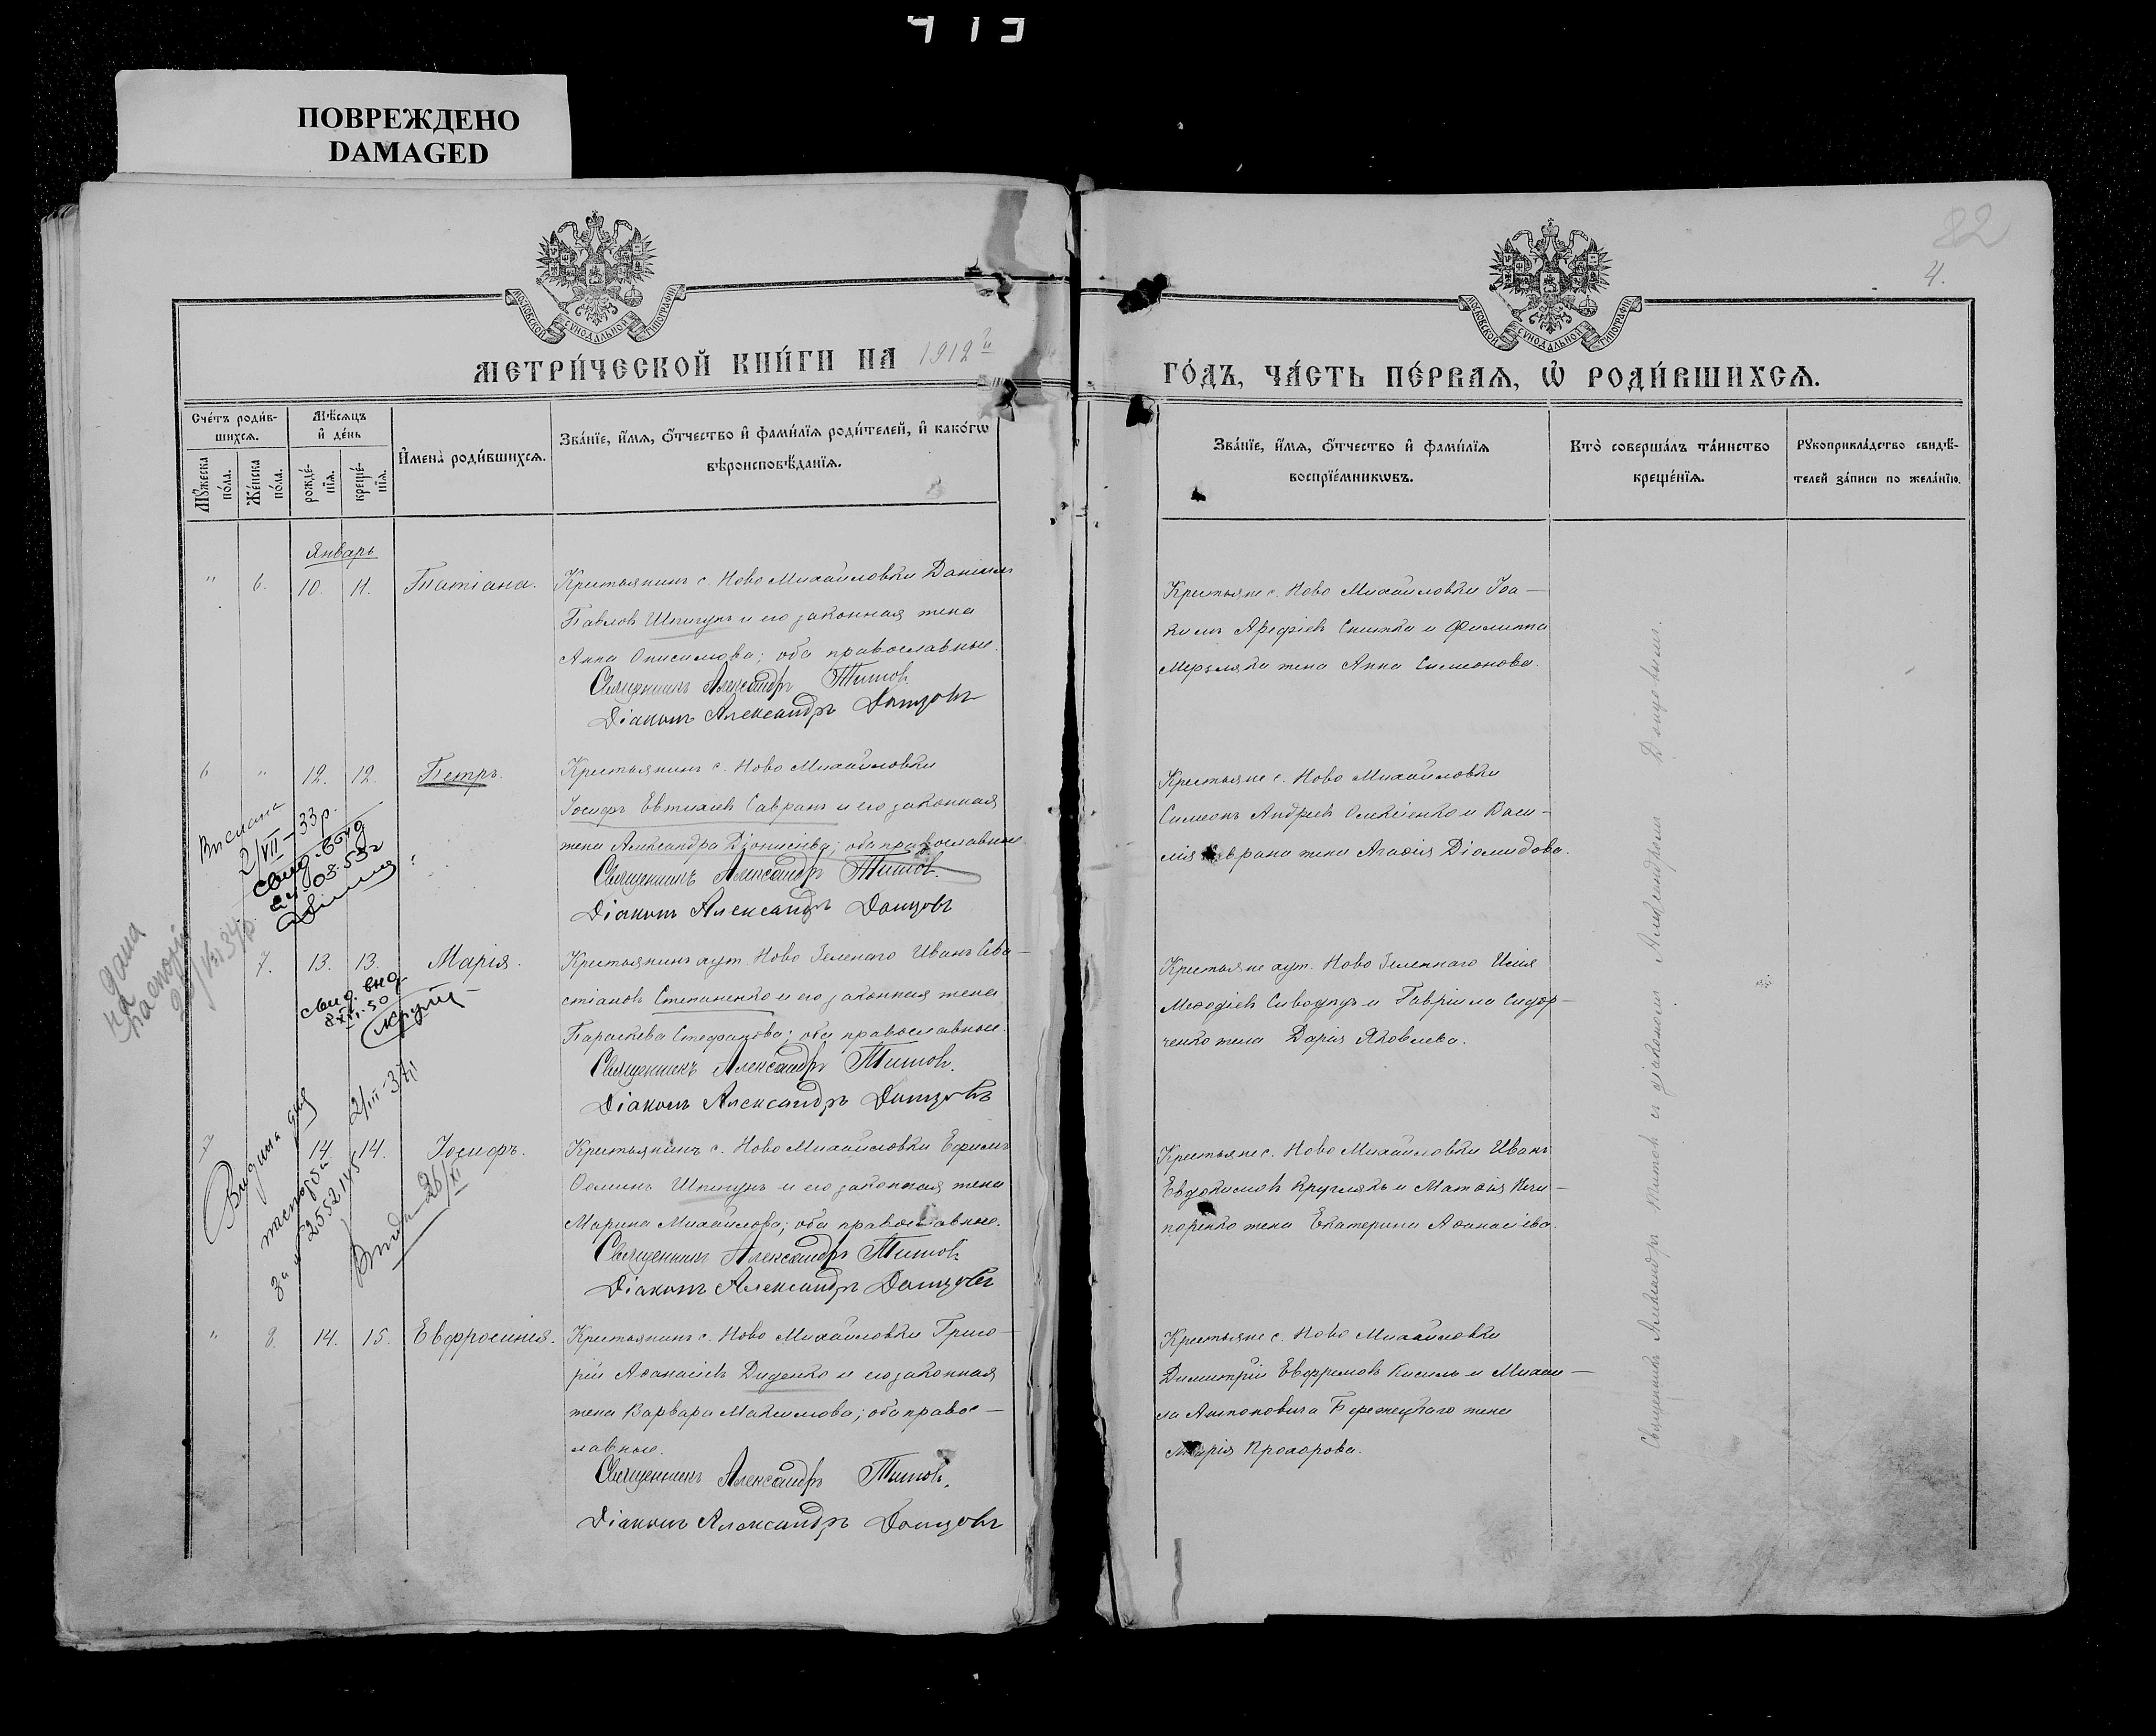 413
ПОВРЕЖДЕНО
DAMAGED
82
4.
МОСКОВСКОЙ СѴНОДАЛЬНОЙ ТИПОГРАФІИ
МОСКОВСКОЙ СѴНОДАЛЬНОЙ ТИПОГРАФІИ
МЕТРИ́ЧЕСКОЙ КНИ́ГИ НА 1912й
ГО́ДЪ, ЧА́СТЬ ПЕ́РВАЯ, Ѡ РОДИ́ВШИХСЯ.
Сче́тъ роди́в-
шихся.
Мꙋ́жеска по́ла.
Же́нска по́ла.
Мѣ́сяцъ
и҆ де́нь
рожде́-
нїя.
креще́-
нїя.
И҆мена̀ роди́вшихся.
Зва́нїе, и҆́мя, о҆́тчество и҆ фами́лїя роди́телей, и҆ како́гѡ
вѣроисповѣ́данїя.
Зва́нїе, и҆́мя, о҆́тчество и҆ фами́лїя
воспрїе́мникѡвъ.
Кто̀ соверша́лъ та́инство
креще́нїя.
Рꙋкоприкла́дство свидѣ́-
телей за́писи по жела́нїю.
Январь
" 6. 10. 11. Татіана.
Крестьянинъ с. Ново Михайловки Даніилъ
Павловъ Шпигунъ и его законная жена
Анна Онисимова; оба православные.
Священникъ Александръ Титовъ
Діаконъ Александръ Донцовъ
Крестьяне с. Ново Михайловки Іоа-
кимъ Арефіевъ Снижка и Филиппа
Мерзляка жена Анна Симеонова.
6 " 12. 12. Петръ.
Крестьянинъ с. Ново Михайловки
Іосифъ Евтихіевъ Савранъ и его законная
жена Александра Діонисіева; оба православные
Священникъ Александръ Титовъ.
Діаконъ Александръ Донцовъ
Крестьяне с. Ново Михайловки
Симеонъ Андреевъ Олексіенко и Васи-
лія Саврана жена Агафія Діомидова.
2/VII-33р.
24-03.53г
дана
на
7. 13. 13. Марія.
Крестьянинъ хут. Ново Зеленаго Иванъ Сева-
стіановъ Степаненко и его законная жена
Параскева Стефанова; оба православные.
Священникъ Александръ Титовъ.
Діаконъ Александръ Донцовъ
Крестьяне хут. Ново Зеленнаго Илія
Мефодіевъ и Гавріила Сидор-
ченко жена Дарія Яковлева.
7 14. 14. Іосифъ.
Крестьянинъ с. Ново Михайловки Ефимъ
Фоминъ Шпигунъ и его законная жена
Марина Михайлова; оба православные.
Священникъ Александръ Титовъ
Діаконъ Александръ Донцовъ
Крестьяне с. Ново Михайловки Иванъ
Евдокимовъ Круглякъ и Матфія Ничи-
поренко жена Екатерина Афанасіева.
26/XI
" 8. 14. 15. Евфросинія.
Крестьянинъ с. Ново Михайловки Григо-
рій Афанасіевъ Диденко и его законная
жена Варвара Максимова; оба право-
славные.
Священникъ Александръ Титовъ.
Діаконъ Александръ Донцовъ
Крестьяне с. Ново Михайловки
Димитрій Евфремовъ Кисиль и Михаи-
ла Антоновича Бережецкаго жена
Марія Прохорова.
Священникъ Александръ Титовъ съ діакономъ Александромъ Донцовымъ.